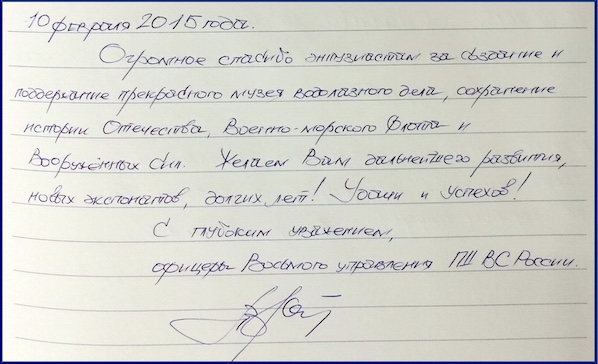 10 февраля 2015 года.
Огромное спасибо энтузиастам за создание и
поддержание прекрасного музея водолазного дела, сохранение
истории Отечества, Военно-морского Флота и
Вооружённых Сил. Желаем Вам дальнейшего развития,
новых экспонатов, долгих лет! Удачи и успехов!
С глубоким уважением,
офицеры Восьмого управления ГШ ВС России.